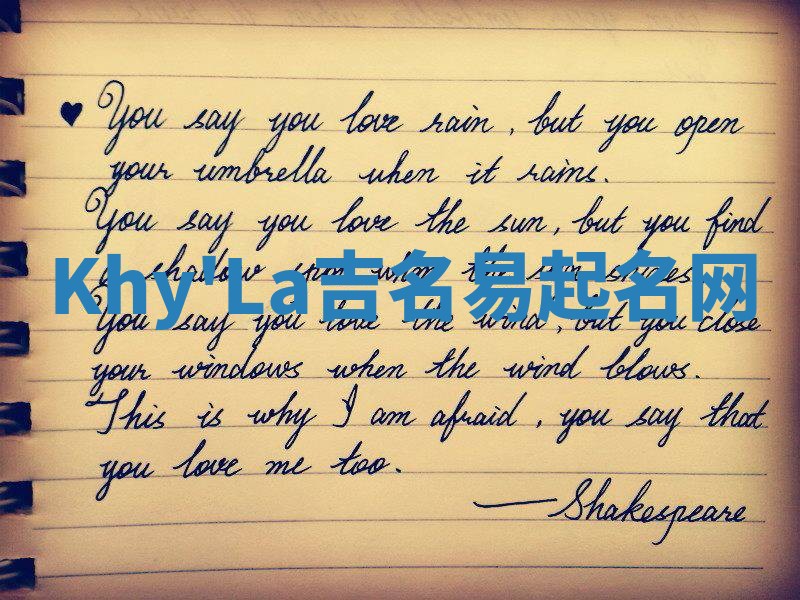 ♥ You say you love rain, but you open
your umbrella when it rains.
You say you love the sun, but you find
a shadow spot when the sun shines.
Khy'La吉名易起名网
You say you love the wind, but you close
your windows when the wind blows.
This is why I am afraid, you say that
you love me too.
—Shakespeare